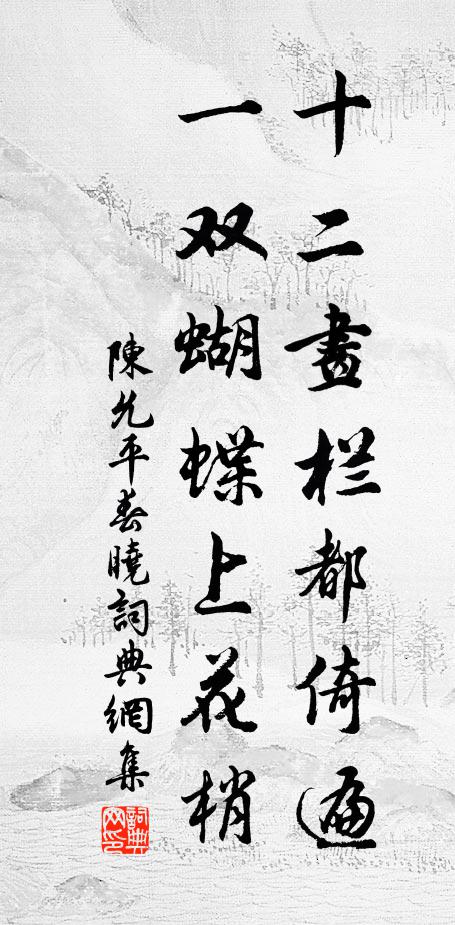 十二畫栏都倚遍
一双蝴蝶上花梢
陳允平春曉詞典網集
詞典网印